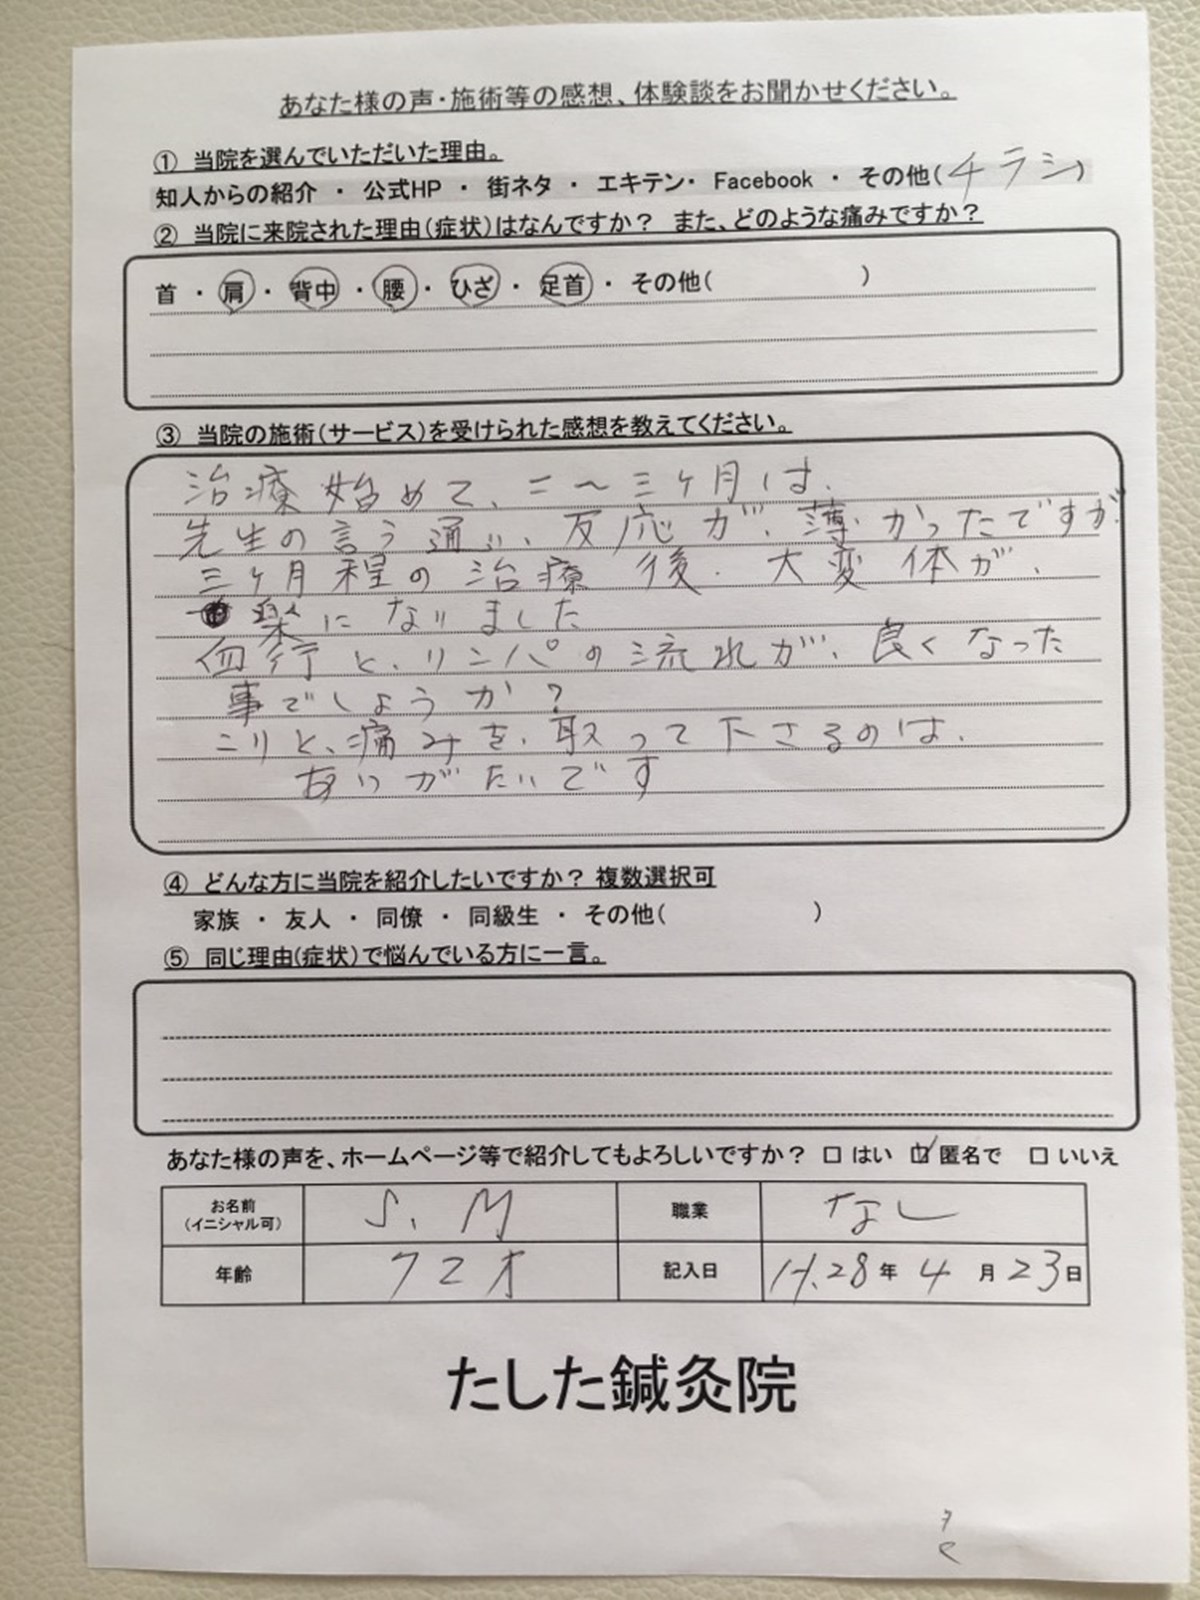 あなた様の声・施術等の感想、体験談をお聞かせください。
① 当院を選んでいただいた理由。
知人からの紹介 ・ 公式HP ・ 街ネタ ・ エキテン・ Facebook ・ その他(チラシ)
② 当院に来院された理由(症状)はなんですか? また、どのような痛みですか?
首 ・ 肩 ・ 背中 ・ 腰 ・ ひざ ・ 足首 ・ その他( )
③ 当院の施術(サービス)を受けられた感想を教えてください。
治療始めて、二〜三ヶ月は、
先生の言う通り、反応が、薄かったですが
三ヶ月程の治療後、大変体が、
楽になりました
血行と、リンパの流れが、良くなった
事でしょうか?
コリと、痛みを、取って下さるのは、
ありがたいです
④ どんな方に当院を紹介したいですか? 複数選択可
家族 ・ 友人 ・ 同僚 ・ 同級生 ・ その他( )
⑤ 同じ理由(症状)で悩んでいる方に一言。
あなた様の声を、ホームページ等で紹介してもよろしいですか? □ はい ☑ 匿名で □ いいえ
お名前 (イニシャル可) S.M 職業 なし
年齢 72才 記入日 H.28年 4月23日
たした鍼灸院